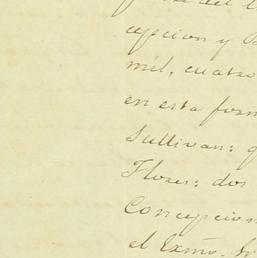 del
cepcion y
mil, cuatro
en esta form
Sullivan: q
Flores: dos
Concepcion
el Exmo. Sr